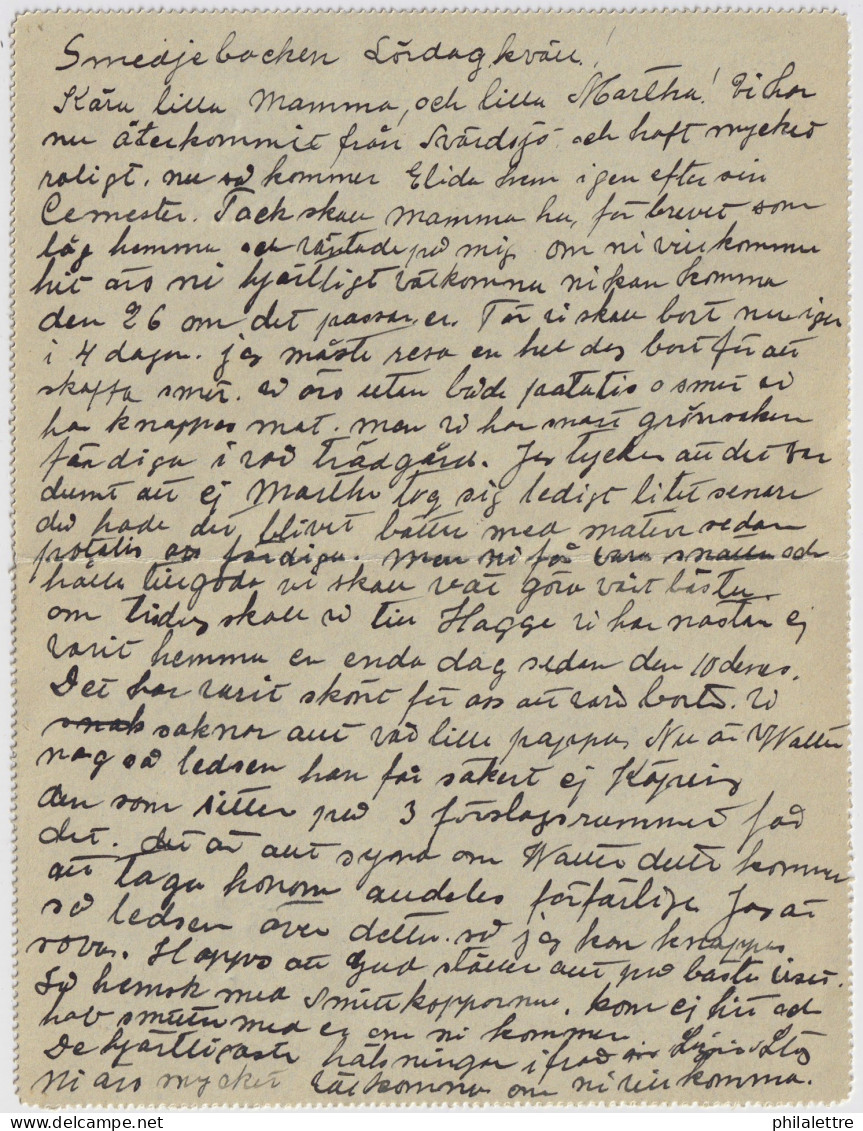 Smedjebacken Lördag kväll!
Kära lilla Mamma, och lilla Martha! Vi har
nu återkommit från Svärdsjö och haft mycket
roligt. nu så kommer Elida hem igen efter sin
Cemester. Tack skall Mamma ha, för brevet som
låg hemma och väntade på mig om ni vill komma
hit äro ni hjärtligt välkomna ni kan komma
den 26 om det passar er. För vi skall bort nu igen
i 4 dagar. jag måste resa en hel deg bort för att
skaffa smör. vi äro utan både potatis o smör vi
ha knappas mat. men vi har snart grönsaker
färdiga i vår trädgård. Jag tycker att det var
dumt att ej Martha tog sig ledigt litet senare
då hade det blivit bättre med maten sedan
potatis är färdiga. Men ni får vara snälla och
hålla tillgodo vi skall väl göra vårt bästa.
om tisdag skall vi till Hagge vi har nästan ej
varit hemma en enda dag sedan den 10 deras.
Det har varit skönt för oss att vara borta. Vi
saknar allt vår lille pappa, Nu är Walter
nog så ledsen han får säkert ej
den som sitter på 3 förslagsrummet får
det. det är allt synd om Walter detta kommer
att taga honom alldeles förfärliga Jag är
så ledsen över detta. så jag kan knappas
sova. Hoppas att Gud ställer allt på bästa viset.
Så hemsk med Smittkopporna. kom ej hit och
hav smitta med er om ni kommer
De hjärtligaste hälsningar ifrån oss
Ni äro mycket välkomna om ni vill komma.
philalettre